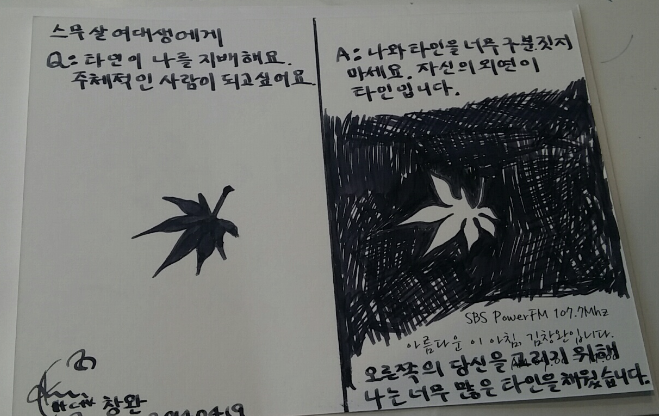 스무살 여대생에게
Q: 타연이 나를 지배해요.
주체적인 사람이 되고싶어요
A: 나와 타인을 너무 구분짓지
마세요. 자신의 외연이
타인입니다.
SBS PowerFM 107.7Mhz
아름다운 이 아침, 김창완입니다.
오른쪽의 당신을 그리기 위해
나는 너무 많은 타인을 채웠습니다.
창완